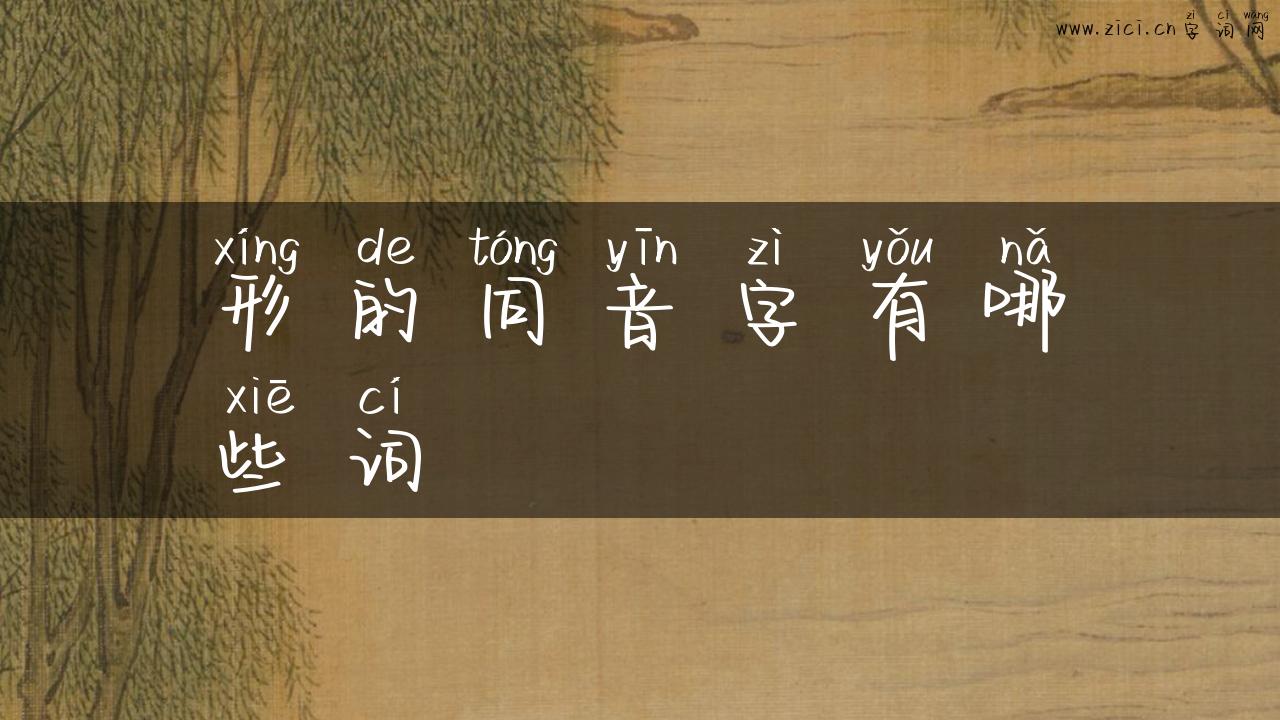 zì cí wǎng
www.zici.cn 字词网
xíng de tóng yīn zì yǒu nǎ
形的同音字有哪
xiē cí
些词